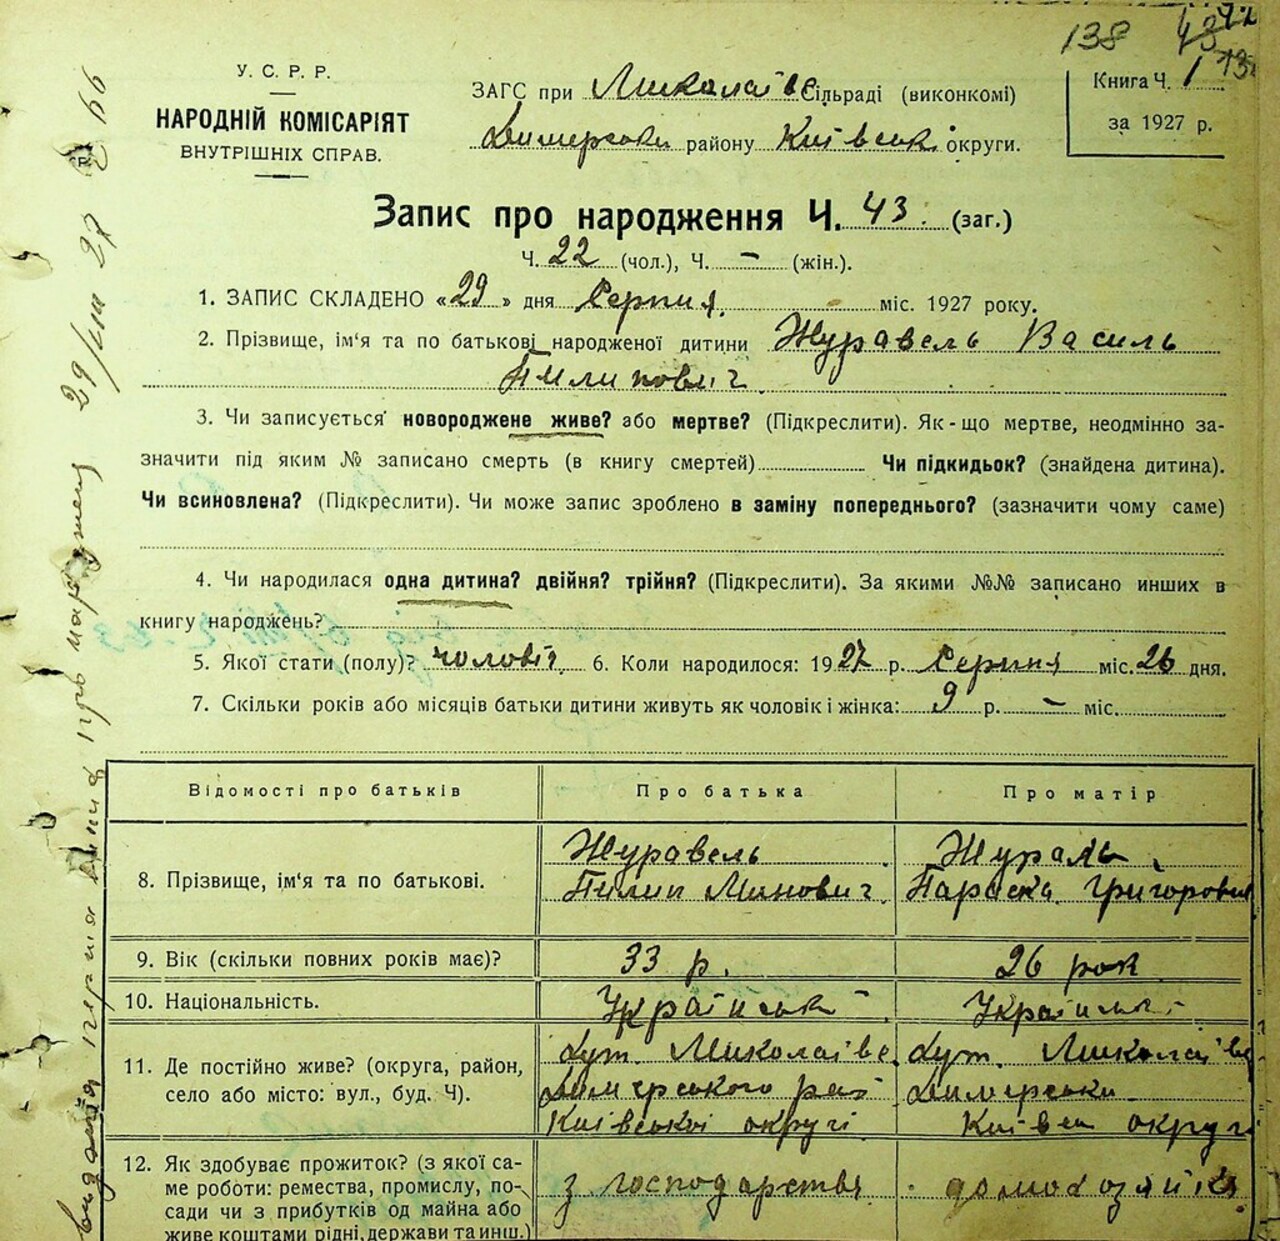 138 43
У. С. Р. Р.
НАРОДНІЙ КОМІСАРІЯТ
ВНУТРІШНІХ СПРАВ.
ЗАГС при Миколаївс Сільраді (виконкомі)
Димерськи району Київськ. округи.
Книга Ч. 1
за 1927 р.
Запис про народження Ч. 43. (заг.)
Ч. 22 (чол.), Ч. – (жін.).
1. ЗАПИС СКЛАДЕНО «29» дня Серпня. міс. 1927 року.
2. Прізвище, ім'я та по батькові народженої дитини Журавель Василь
Пилипович.
3. Чи записується новороджене живе? або мертве? (Підкреслити). Як-що мертве, неодмінно за-
значити під яким № записано смерть (в книгу смертей) Чи підкидьок? (знайдена дитина).
Чи всиновлена? (Підкреслити). Чи може запис зроблено в заміну попереднього? (зазначити чому саме)
4. Чи народилася одна дитина? двійня? трійня? (Підкреслити). За якими №№ записано инших в
книгу народжень?
5. Якої стати (полу)? чоловіч. 6. Коли народилося: 1927 р. Серпня міс. 26 дня.
7. Скільки років або місяців батьки дитини живуть як чоловік і жінка: 9 р. – міс.
Відомості про батьків Про батька Про матір
8. Прізвище, ім'я та по батькові.
Журавель
Пилип Минович.
Журавль
Параска Григоровна
9. Вік (скільки повних років має)? 33 р. 26 рок
10. Національність. Українськ Українськ
11. Де постійно живе? (округа, район,
село або місто: вул., буд. Ч).
Хут. Миколаївс
Димерського рай
Київської округі
Хут. Миколаївс
Димерськи
Київськ округі
12. Як здобуває прожиток? (з якої са-
ме роботи: ремества, промислу, по-
сади чи з прибутків од майна або
живе коштами рідні, держави та инш.)
з господарства
домохозяйка
29/VIII 27